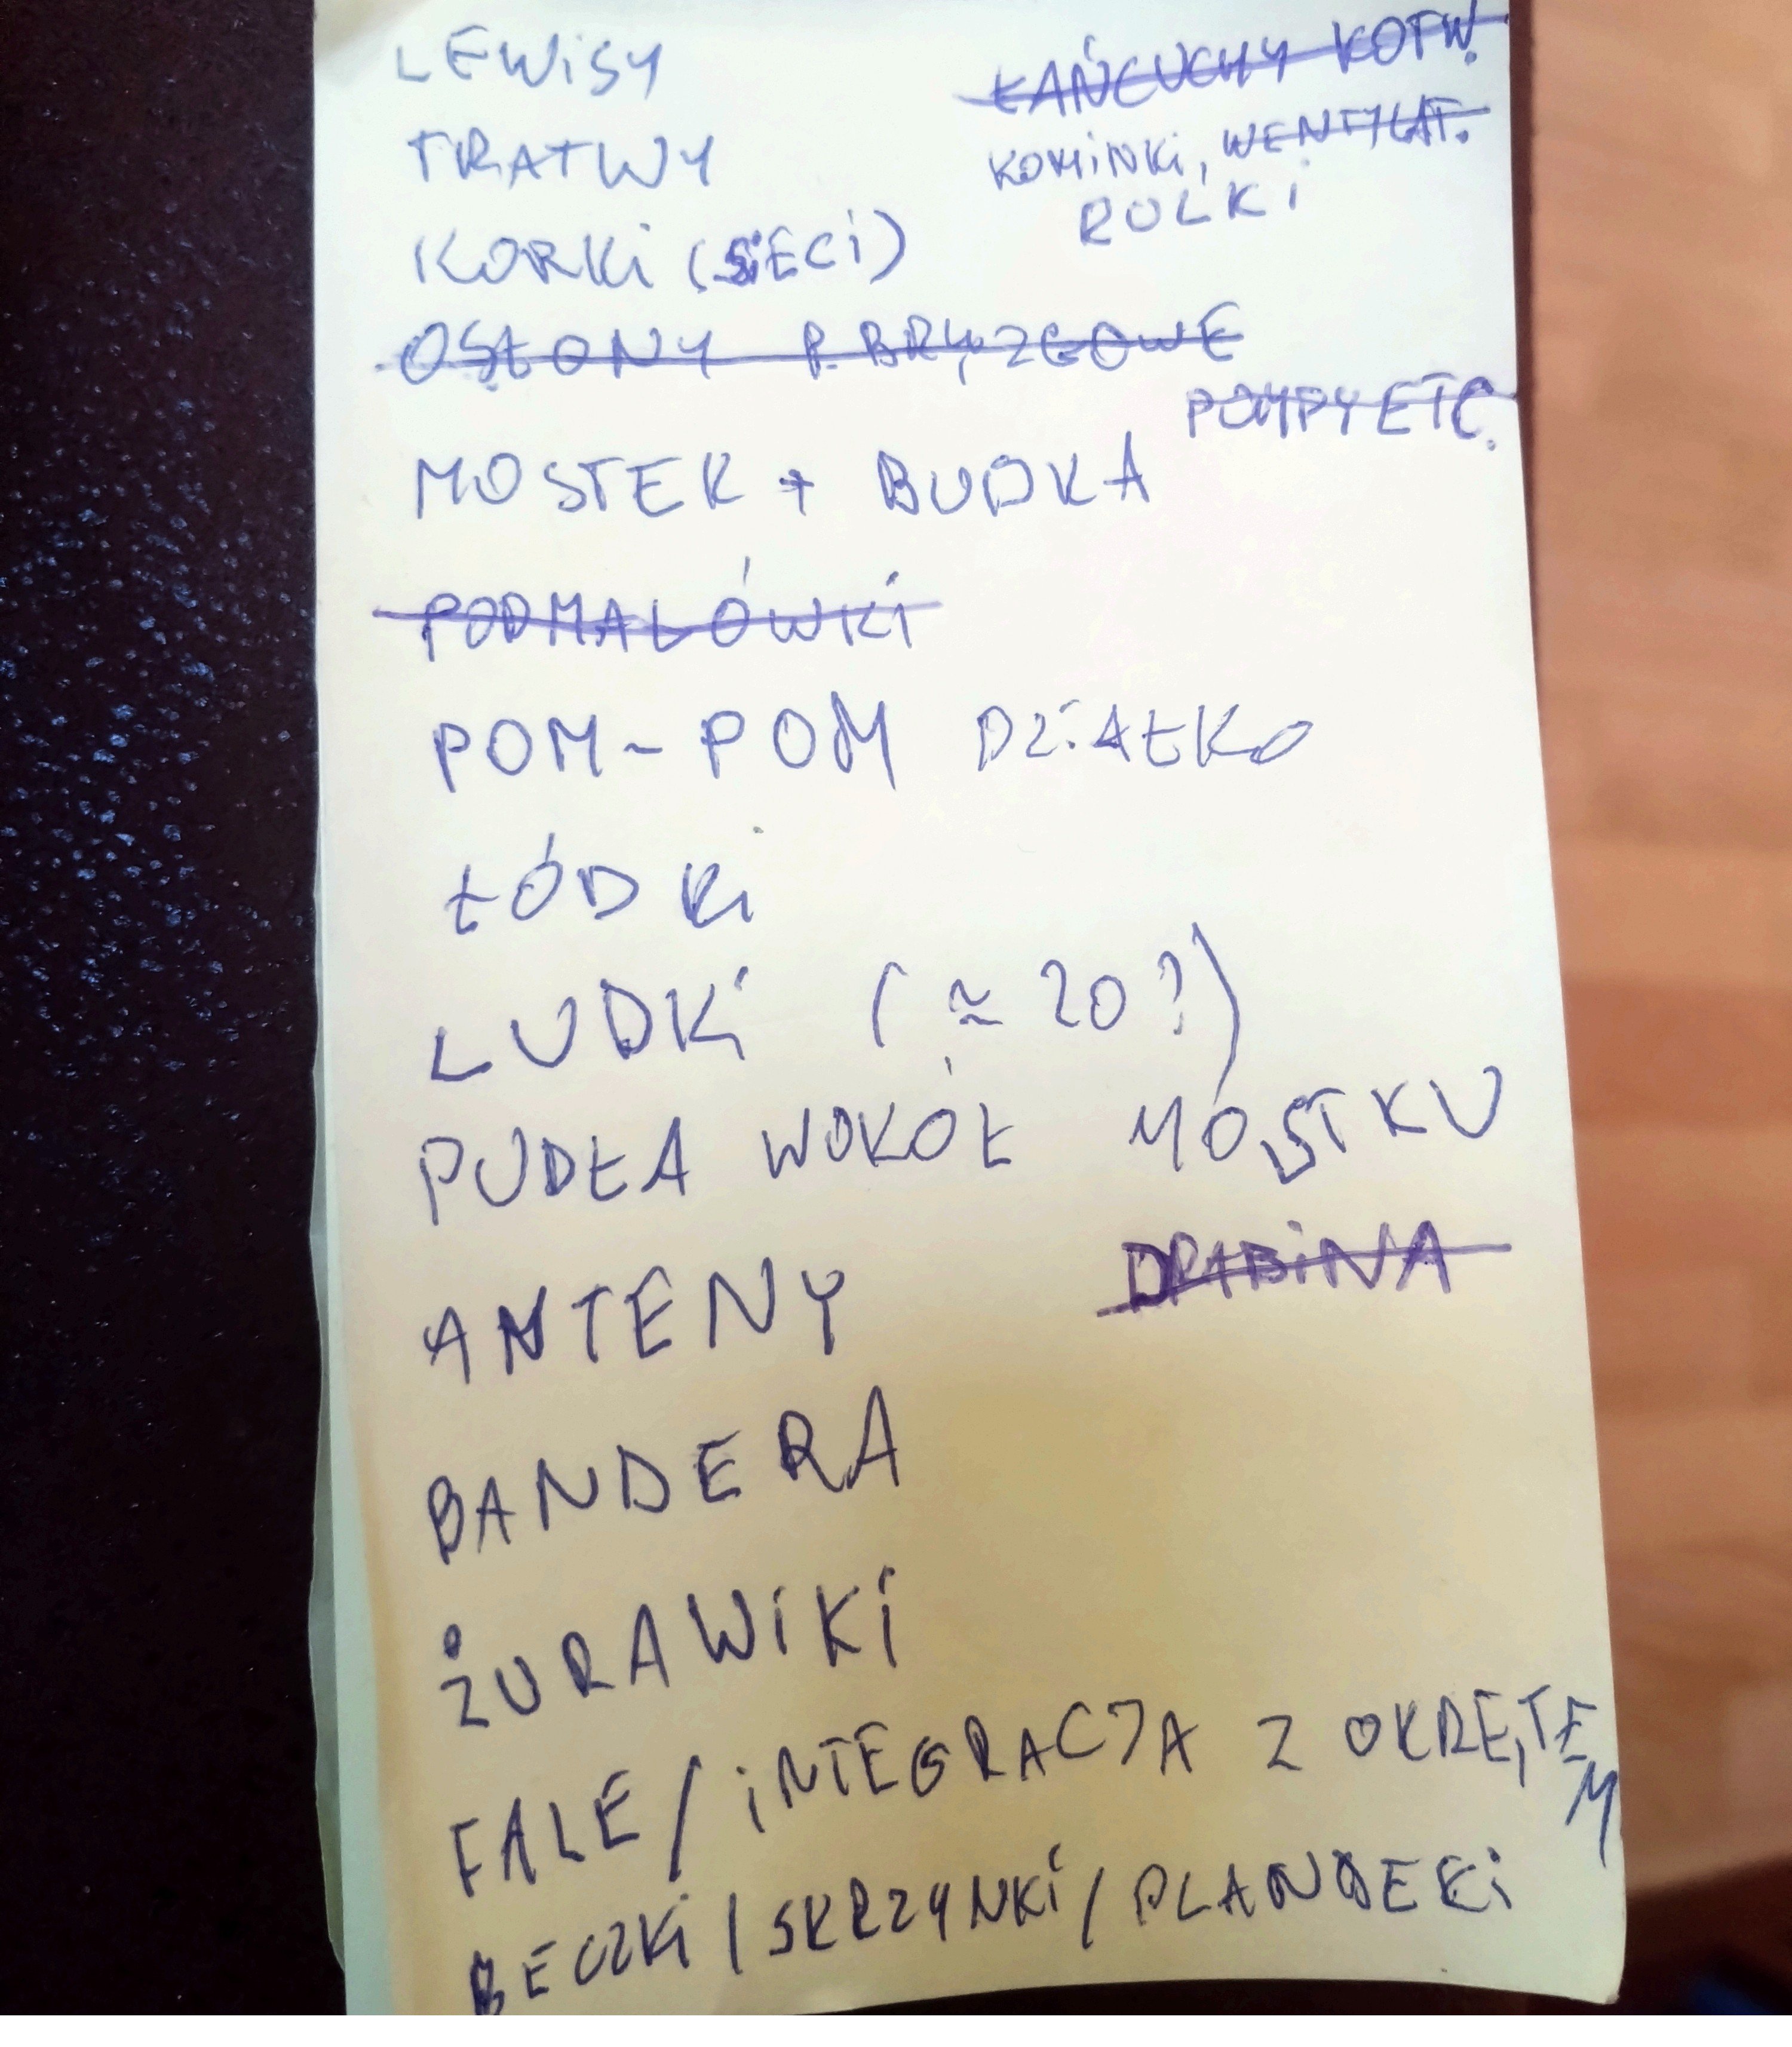 LEWISY
ŁAŃCUCHY KOTW.
TRATWY
KOMINKI, WENTYLAT.
ROLKI
KORKI (SIECI)
OSŁONY P. BRYZGOWE
POMPY ETC.
MOSTEK + BUDKA
PODMALÓWKI
POM-POM DZIAŁKO
ŁÓDKI
LUDKI (≈ 20?)
PUDŁA WOKÓŁ MOSTKU
ANTENY
DRABINA
BANDERA
ŻURAWIKI
FALE/INTEGRACJA Z OKRĘTEM
BECZKI/SKRZYNKI/PLANDEKI